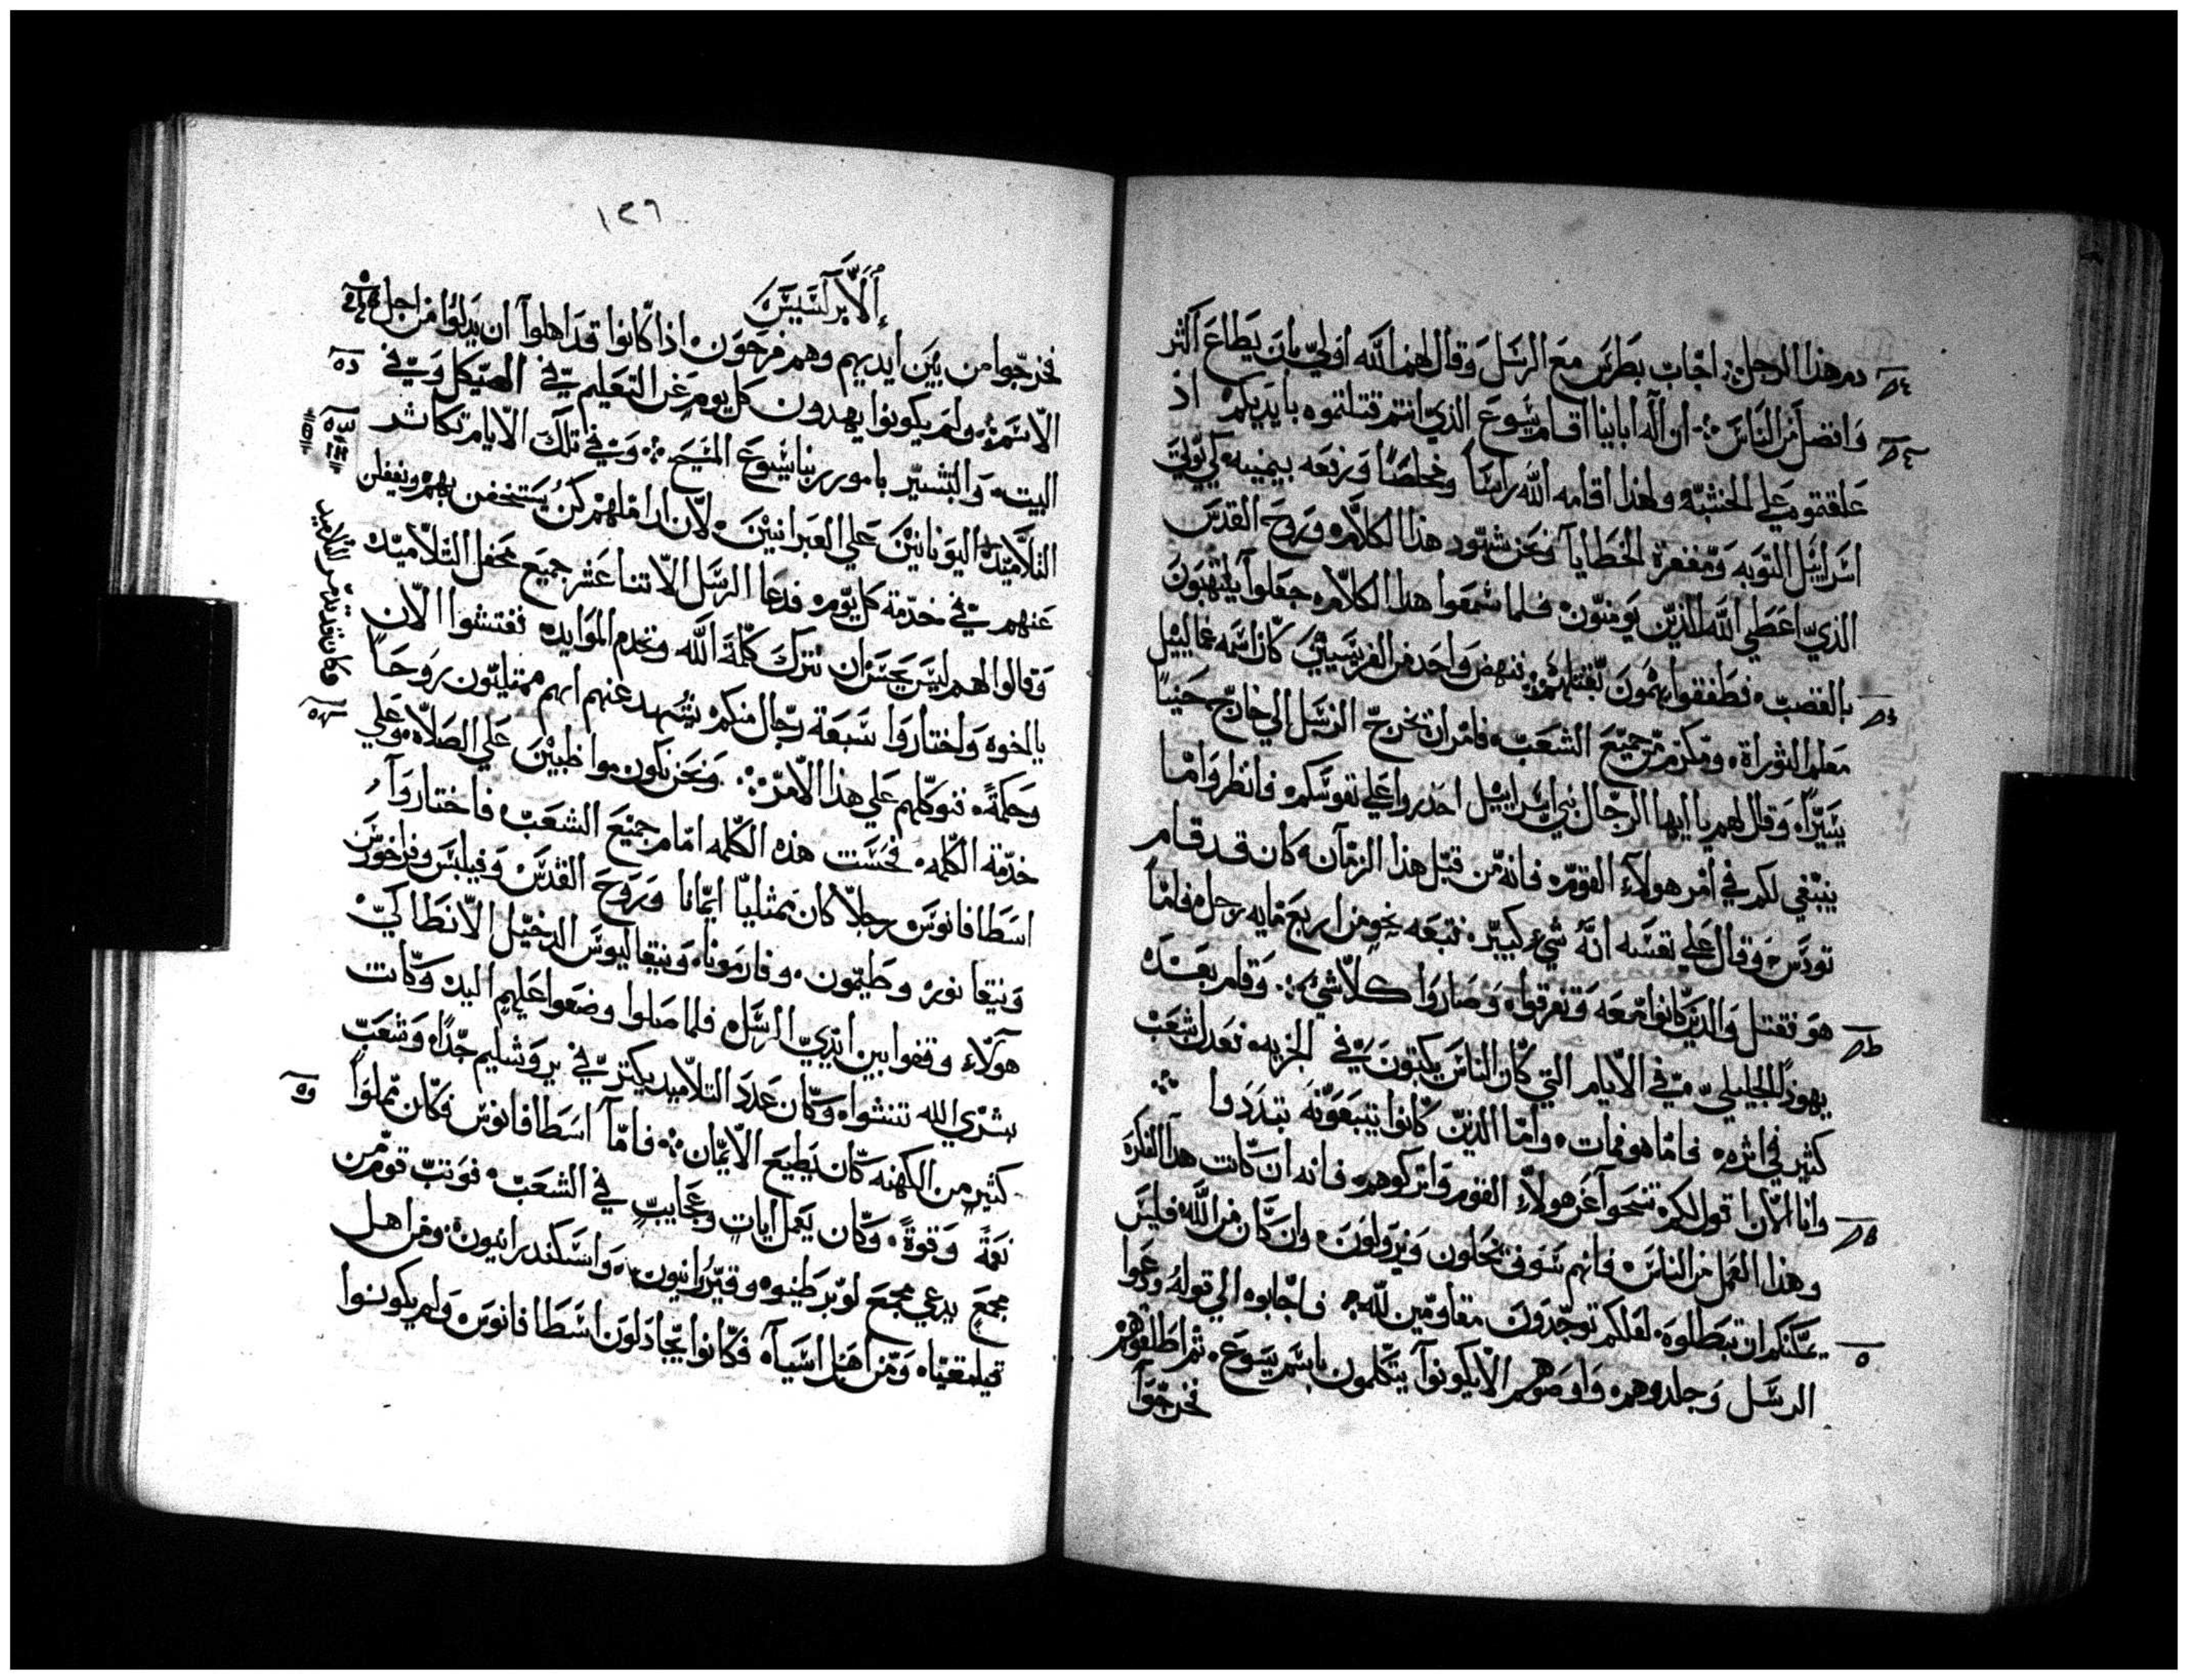 دم هذا الرجل اجاب بطرس مع الرسل وقال لهم الله اولي بان يطاع اكثر
وافضل من الناس ان اله ابائنا اقام يسوع الذي انتم قتلتموه بايديكم اذ
علقتموه علي الخشبه ولهذا اقامه الله راسا ومخلصا ورفعه بيمينه لكي يولي
اسراييل التوبه ومغفرة الخطايا ونحن شهود هذا الكلام وروح القدس
الذي اعطي الله الذين يومنون فلما سمعوا هذا الكلام جعلوا يلتهبون
بالغضب فطفقوا يهمون بقتلهم فنهض واحد من الفريسيين كان اسمه غمالييل
معلم التوراة ومكرم من جميع الشعب فامر ان تخرج الرسل الي خارج حينا
يسيرا وقال لهم يا ايها الرجال بني اسراييل احذروا علي نفوسكم فانظروا ما
ينبغي لكم في امر هولاء القوم فانه من قبل هذا الزمان كان قد قام
تودس وقال علي نفسه انه شيء كبير فتبعه نحو من اربع مايه رجل فاما
هو فقتل والذين كانوا معه وتفرقوا وصاروا كلا شيء وقام بعده
يهوذا الجليلي في الايام التي كان الناس يكتبون في الجزيه فعدل شعب
كثير في اثره فاما هو فمات واما الذين كانوا يتبعونه تبددوا
وانا الان اقول لكم تنحوا عن هولاء القوم واتركوهم فانه ان كانت هذا الفكرة
وهذا العمل من الناس فانهم سوف يحلون ويزولون وان كان من الله فليس
يمكنكم ان تبطلوه لعلكم توجدون مقاومين لله فاجابوه الي قوله ودعوا
الرسل وجلدوهم واوصوهم الا يكونوا يتكلمون باسم يسوع ثم اطلقوهم
فخرجوا
١٢٦
الابركسيس
فخرجوا من بين ايديهم وهم فرحون اذا كانوا قد اهلوا ان يذلوا من اجل
الاسم ولم يكونوا يهدون كل يوم عن التعليم في الهيكل وفي
البيت والتبشير بامور ربنا يسوع المسيح وفي تلك الايام تكاثر
التلاميذ اليونانيين علي العبرانيين لان اراملهم كن يستخفن بهم ويغفلن
عنهم في خدمة كل يوم فدعا الرسل الاتنا عشر جميع محفل التلاميذ
وقالوا لهم ليس يحسن ان نترك كلمة الله ونخدم الموايد ففتشوا الان
يا اخوه واختاروا سبعة رجال منكم يشهد عنهم انهم ممتليون روحا
وحكمة فنوكلهم علي هذا الامر ونحن نكون مواظبين علي الصلاه وعلي
خدمة الكلمه فحسنت هذه الكلمه امام جميع الشعب فاختاروا
اسطافانوس رجلا كان ممتليا ايمانا وروح القدس وفيلبس وفراخورس
ونيقانور وطيمون وفارمونا ونيقاليوس الدخيل الانطاكي
هولاء وقفوا بين ايدي الرسل فلما صلوا وضعوا عليهم اليد وكانت
بشري الله تنشوا وكان عدد التلاميذ يكتر في يروشليم جدا وشعب
كثير من الكهنه كان يطيع الايمان فاما اسطافانوس فكان مملوا
نعمة وقوة وكان يعمل ايات وعجايب في الشعب فوتب قوم من
مجمع يدعي مجمع لوبرطينو وقيروانيون واسكندرانيون ومن اهل
قيلمقيا ومن اهل اسيا فكانوا يجادلون اسطافانوس ولم يكونوا